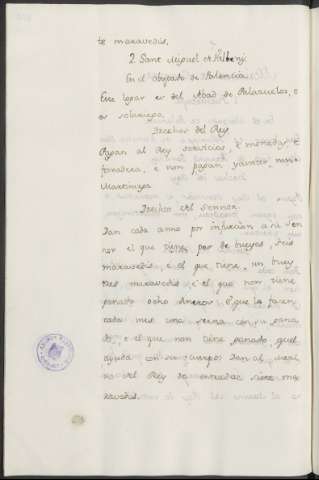 te maravedis.
2. Sant Miguel de Valbení.
En el obispado de Palencia.
Este logar es del Abad de Palazuelos, e
es solariego.
Derechos del Rey
Pagan al Rey servicios, e monedas, e
fonsadera, e non pagan yantar, nin
Martiniega
Derechos del Sennor.
Dan cada anno por infurcion a su Sen
nor el que tiene par de bueyes, seis
maravedis e el que tiene un buey
tres maravedis e el que non tiene
ganado ocho dineros. E que le facen
cada mes una serna con su gana
do, e el que non tiene ganado quel
ayuda con su cuerpo. Dan al
del Rey de entradas siete ma
ravedis.